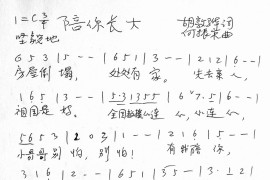 1=C 3/4 陪你长大 胡敦骅词
坚毅地 何振京曲
6 5 3 | 5 - - | 1 6 5 | 3 - - | 2 1 2 | 6 - - |
房屋倒塌, 处处有家。 失去亲人,
1 6 5 | 3 - - | 5·3 1 3 5 5 | 1 6 "7·5 | 6 - - |
祖国是妈。 全国 心连心,小连心
5 6 5 3 | 2 0 3 | 1 - - | 2 1 6 | 5 - - |
小哥哥别怕,别怕! 有我陪你,
3 1 6 | 2 - - | 6 5 1 | 3 5 - | 1 3· 1 2 |